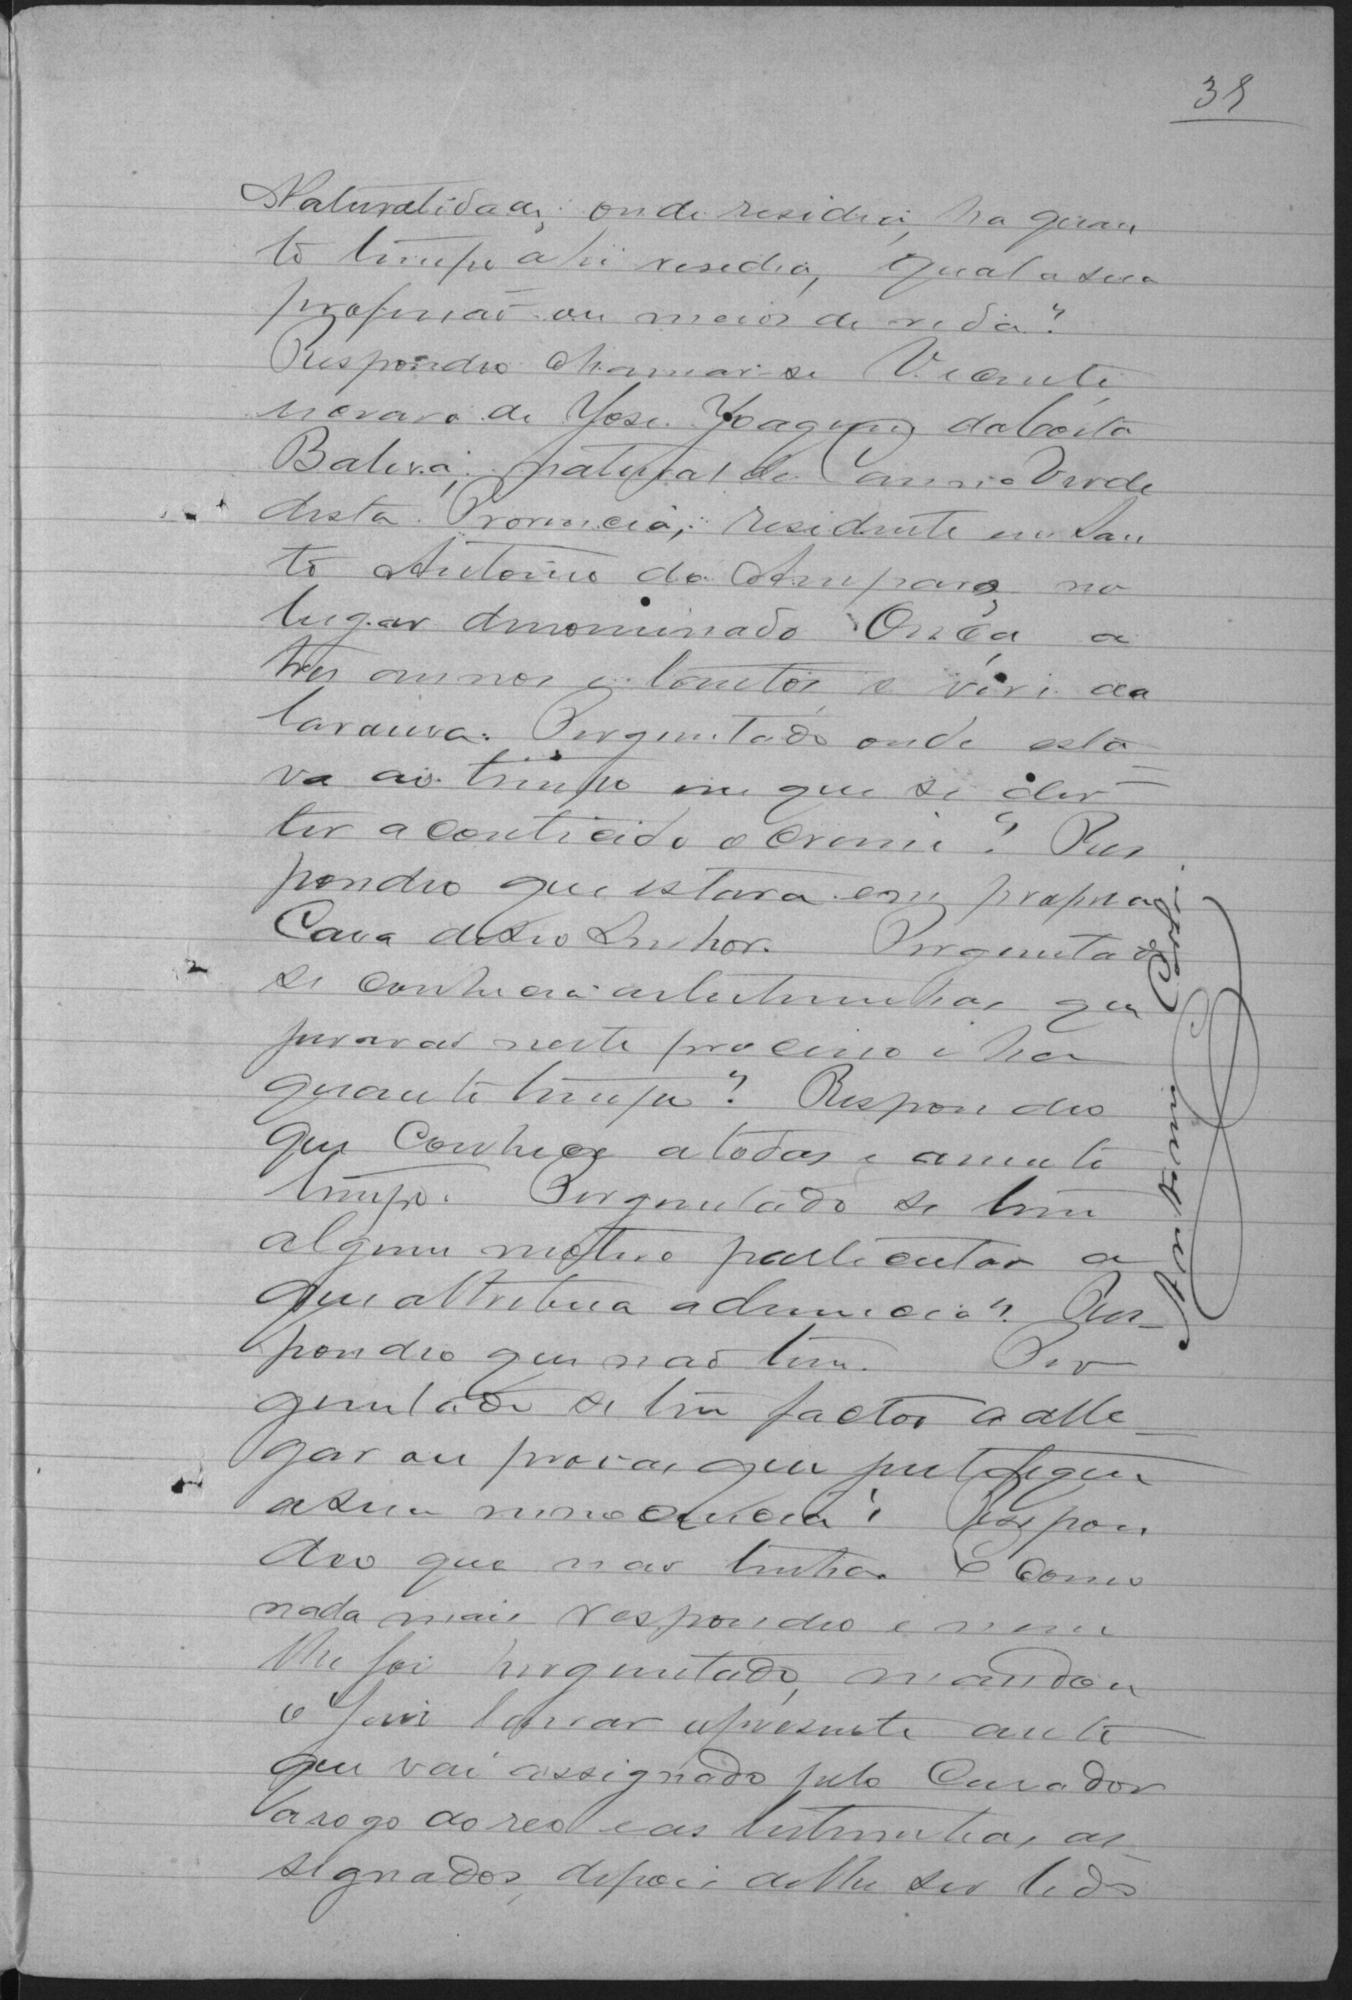 38
Naturalidade, onde residia, ha quan
to tempo ahi residia, qual a sua
profissaõ ou meios de vida?
Respondeo chamar-se Vicente
escravo de José Joaquim da Costa
natural de Canna Verde
desta Provincia, residente em San
to Antonio do Amparo, no
lugar denominado Onça, a
tres annos e tantos, e vive da
lavoura. Perguntado onde esta=
va ao tempo em que se diz=
ter acontecido o crime? Res
pondeo que estava em propria
Casa de seo Senhor. Perguntado
se conhecia as testemunhas que
juraraõ neste processo e ha
quanto tempo? Respondeo
que Conhece a todas e a muito
tempo. Perguntado se tem
algum motivo particular a
que attribua a denuncia? Res_
pondeo que naõ tem. Per
guntado se tem factos a alle_
gar ou provas que justifiquem
a sua innocencia? Respon
deo que naõ tinha. E como
nada mais respondeo e nem
lhe foi perguntado, mandou
o Juiz lavrar o presente auto
que vai assignado pelo Curador
a rogo do reo e as testemunhas as_
signados, depois de lhe ser lido
Antonio